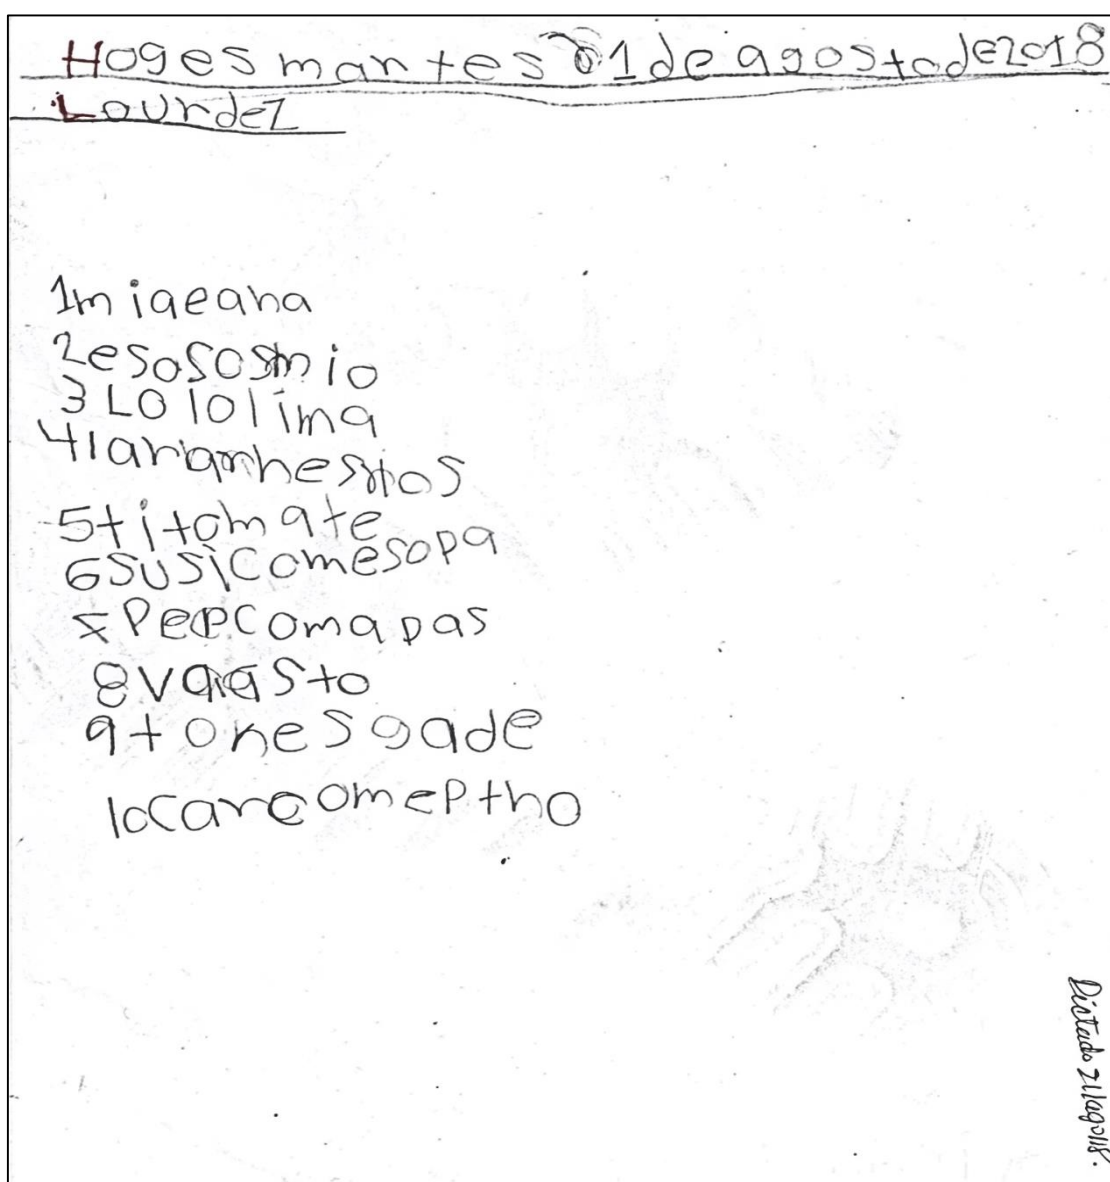 Hoges martes 21deagostode2018
Lourdez
1miaeana
2esososmio
3LOlolima
4laranhesitos
5titomate
6SUSicomesopa
7Pepcomapas
8vaasto
9tonesgade
10carcomeptho
Dictado 21/ago/18.